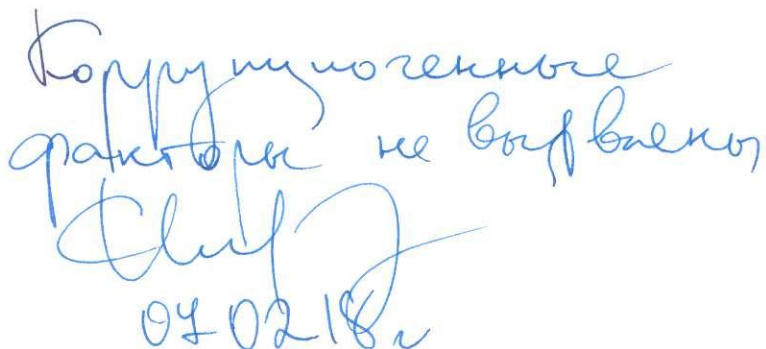 Коррупциогенные
факторы не выявлены
07.02.18г